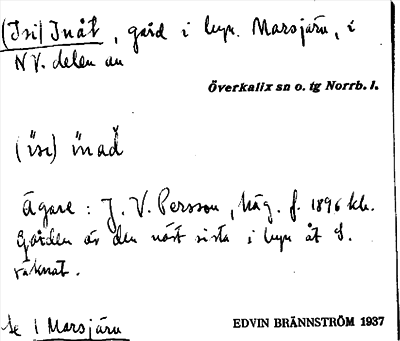 (Isi) Inåt, gård i byn Marsjärv, i
NV. delen av
Överkalix sn o. tg Norrb. l.
(ïsi) ïnad̆
Ägare: J. V. Persson, häg. f. 1896 kb.
Gården är den näst sista i byn åt S.
räknat.
Se 1 Marsjärv
EDVIN BRÄNNSTRÖM 1937